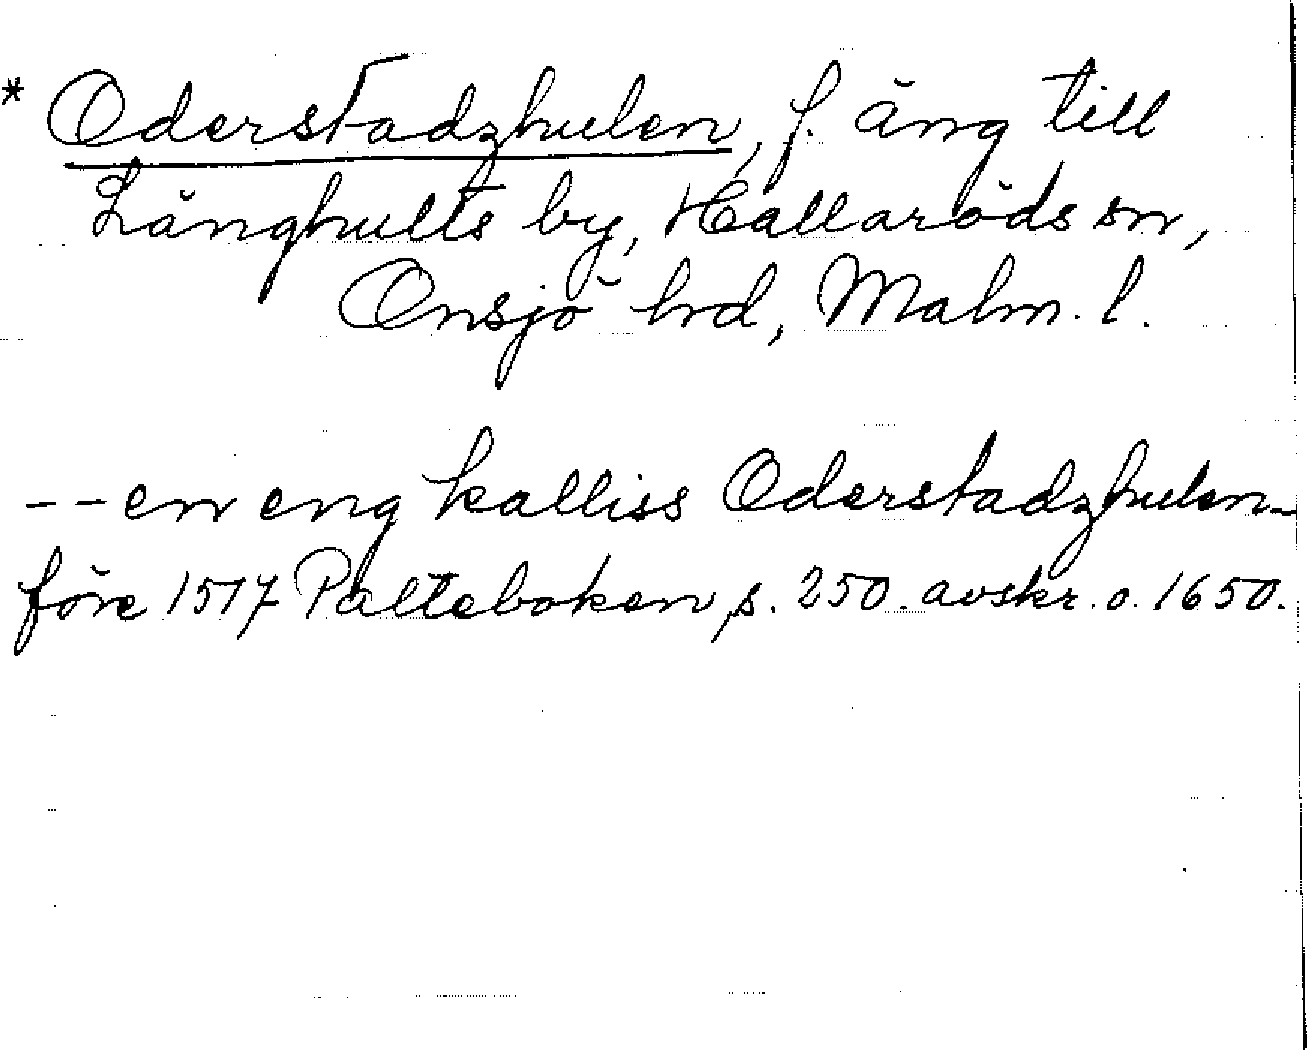 * Oderstadzhulen, f. äng till
Långhults by, Hallaröds sn,
Onsjö hd, Malm. l.
-- en eng kalliss Oderstadzhulen -
före 1517 Palteboken, s. 250. avskr. o. 1650.